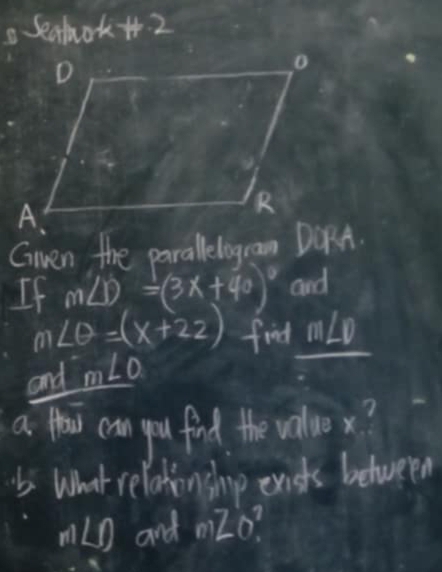 Seatwork #.2
D O
A. R
Given the parallelogram DORA.
If m∠D =(3x+40)° and
m∠O =(x+22) find m∠D
and m∠O
a. How can you find the value x?
b. What relationship exists between
m∠D and m∠O?